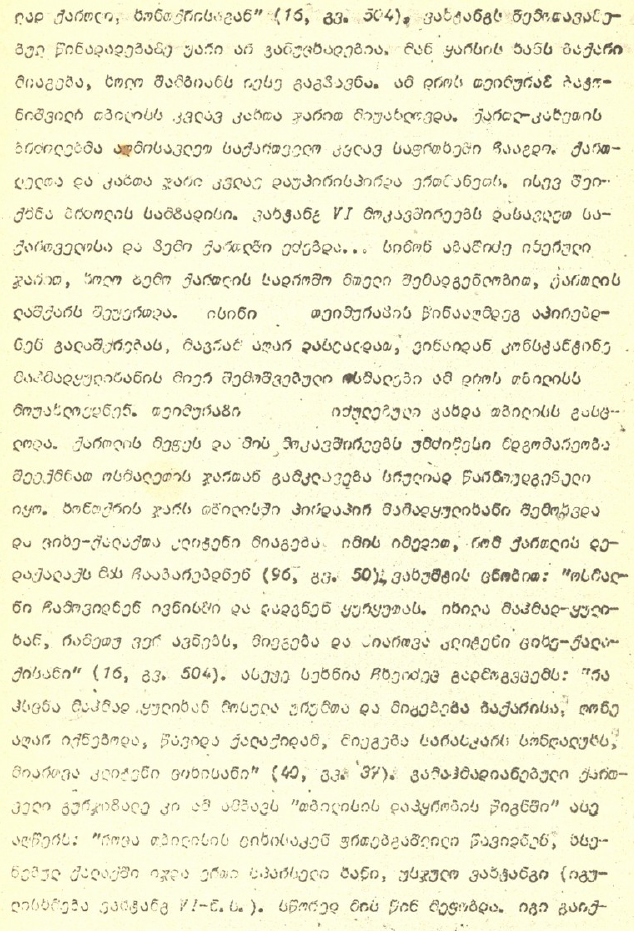 ლად ქართლი, ხონთქრისაგან" (16, გვ. 504). ვახტანგს ზემოთაღნიშ-
ბულ წინადადებაზე უარი არ განუცხადებია. მან ყარსის ხანს ბაქარი
მიაგება, ხოლო შამბიანს იესე გაგზავნა. ამ დროს თეიმურაზ ბატო-
ნიშვილი თბილისს კვლავ კახთა ჯარით მიუახლოვდა. ქართლ-კახეთის
ბრძოლებმა აღმოსავლეთ საქართველო კვლავ საფრთხეში ჩააგდო. ქართ-
ლელთა და კახთა ჯარი კვლავ დაუპირისპირდა ერთმანეთს. ისევ შეი-
ქმნა ბრძოლის სამზადისი. ვახტანგ VI მოკავშირეებს დასავლეთ სა-
ქართველოსა და ზემო ქართლში ეძებდა... სიმონ აბაშიძე იმერული
ჯარით, ხოლო ზემო ქართლის სადროშო მთელი შემადგენლობით, ქართლის
ლაშქარს შეუერთდა. ისინი თეიმურაზის წინააღმდეგ აპირებდ-
ნენ გალაშქრებას, მაგრამ აღარ დასცალდათ, ვინაიდან კონსტანტინე
მაჰმადყულიხანის მიერ შემოშვებული ოსმალები ამ დროს თბილისს
მოუახლოვდნენ. თეიმურაზი იძულებული გახდა თბილისს გასც-
ლოდა. ქართლის მეფეს და მის მოკავშირეებს უმძიმესი მდგომარეობა
შეექმნათ ოსმალეთის ჯართან გამკლავება სრულიად წარმოუდგენელი
იყო. ხონთქრის ჯარს თბილისში პირდაპირ მამადყულიხანი შემოუძღვა
და ციხე-ქალაქთა კლიტენი მიაგება იმის იმედით, რომ ქართლის დე-
დაქალაქს მას ჩააბარებდნენ (96, გვ. 50), ვახუშტის ცნობით: "ოსმალ-
ნი ჩამოვიდნენ ივნისში და დადგნენ ყურყუთას. იხილა მაჰმად-ყული-
ხან, რამეთუ ვერ ავნებს, მიეგება და მიართვა კლიტენი ციხე-ქალა-
ქისანი" (16, გვ. 504). ასევე სეხნია ჩხეიძეც გადმოგვცემს: "რა
ჰსცნა მაჰმად ყულიხან მოსვლა ურუმთა და მიგებება ბაქარისა, ღონე
აღარ იქნებოდა, წავიდა ქალაქიდამ, მიეგება სარასკარს სოღანლუხს,
მიართვა კლიტენი ციხისანი" (40, გვ. 37). გამაჰმადიანებული ქართ-
ველი გურჯიზადე კი ამ ამბავს "თბილისის დაპყრობის წიგნში" ასე
აღწერს: "როცა თბილისის ციხისაკენ ფრთებგაშლილი წავიდნენ, ხსე-
ნებულ ქალაქში იჯდა ერთი სპარსელი ხანი, ურჯულო ვახტანგი (იგუ-
ლისხმება ვახტანგ VI-ნ.ს.). სწორედ მის წინ მეფობდა. იგი გაიქ-